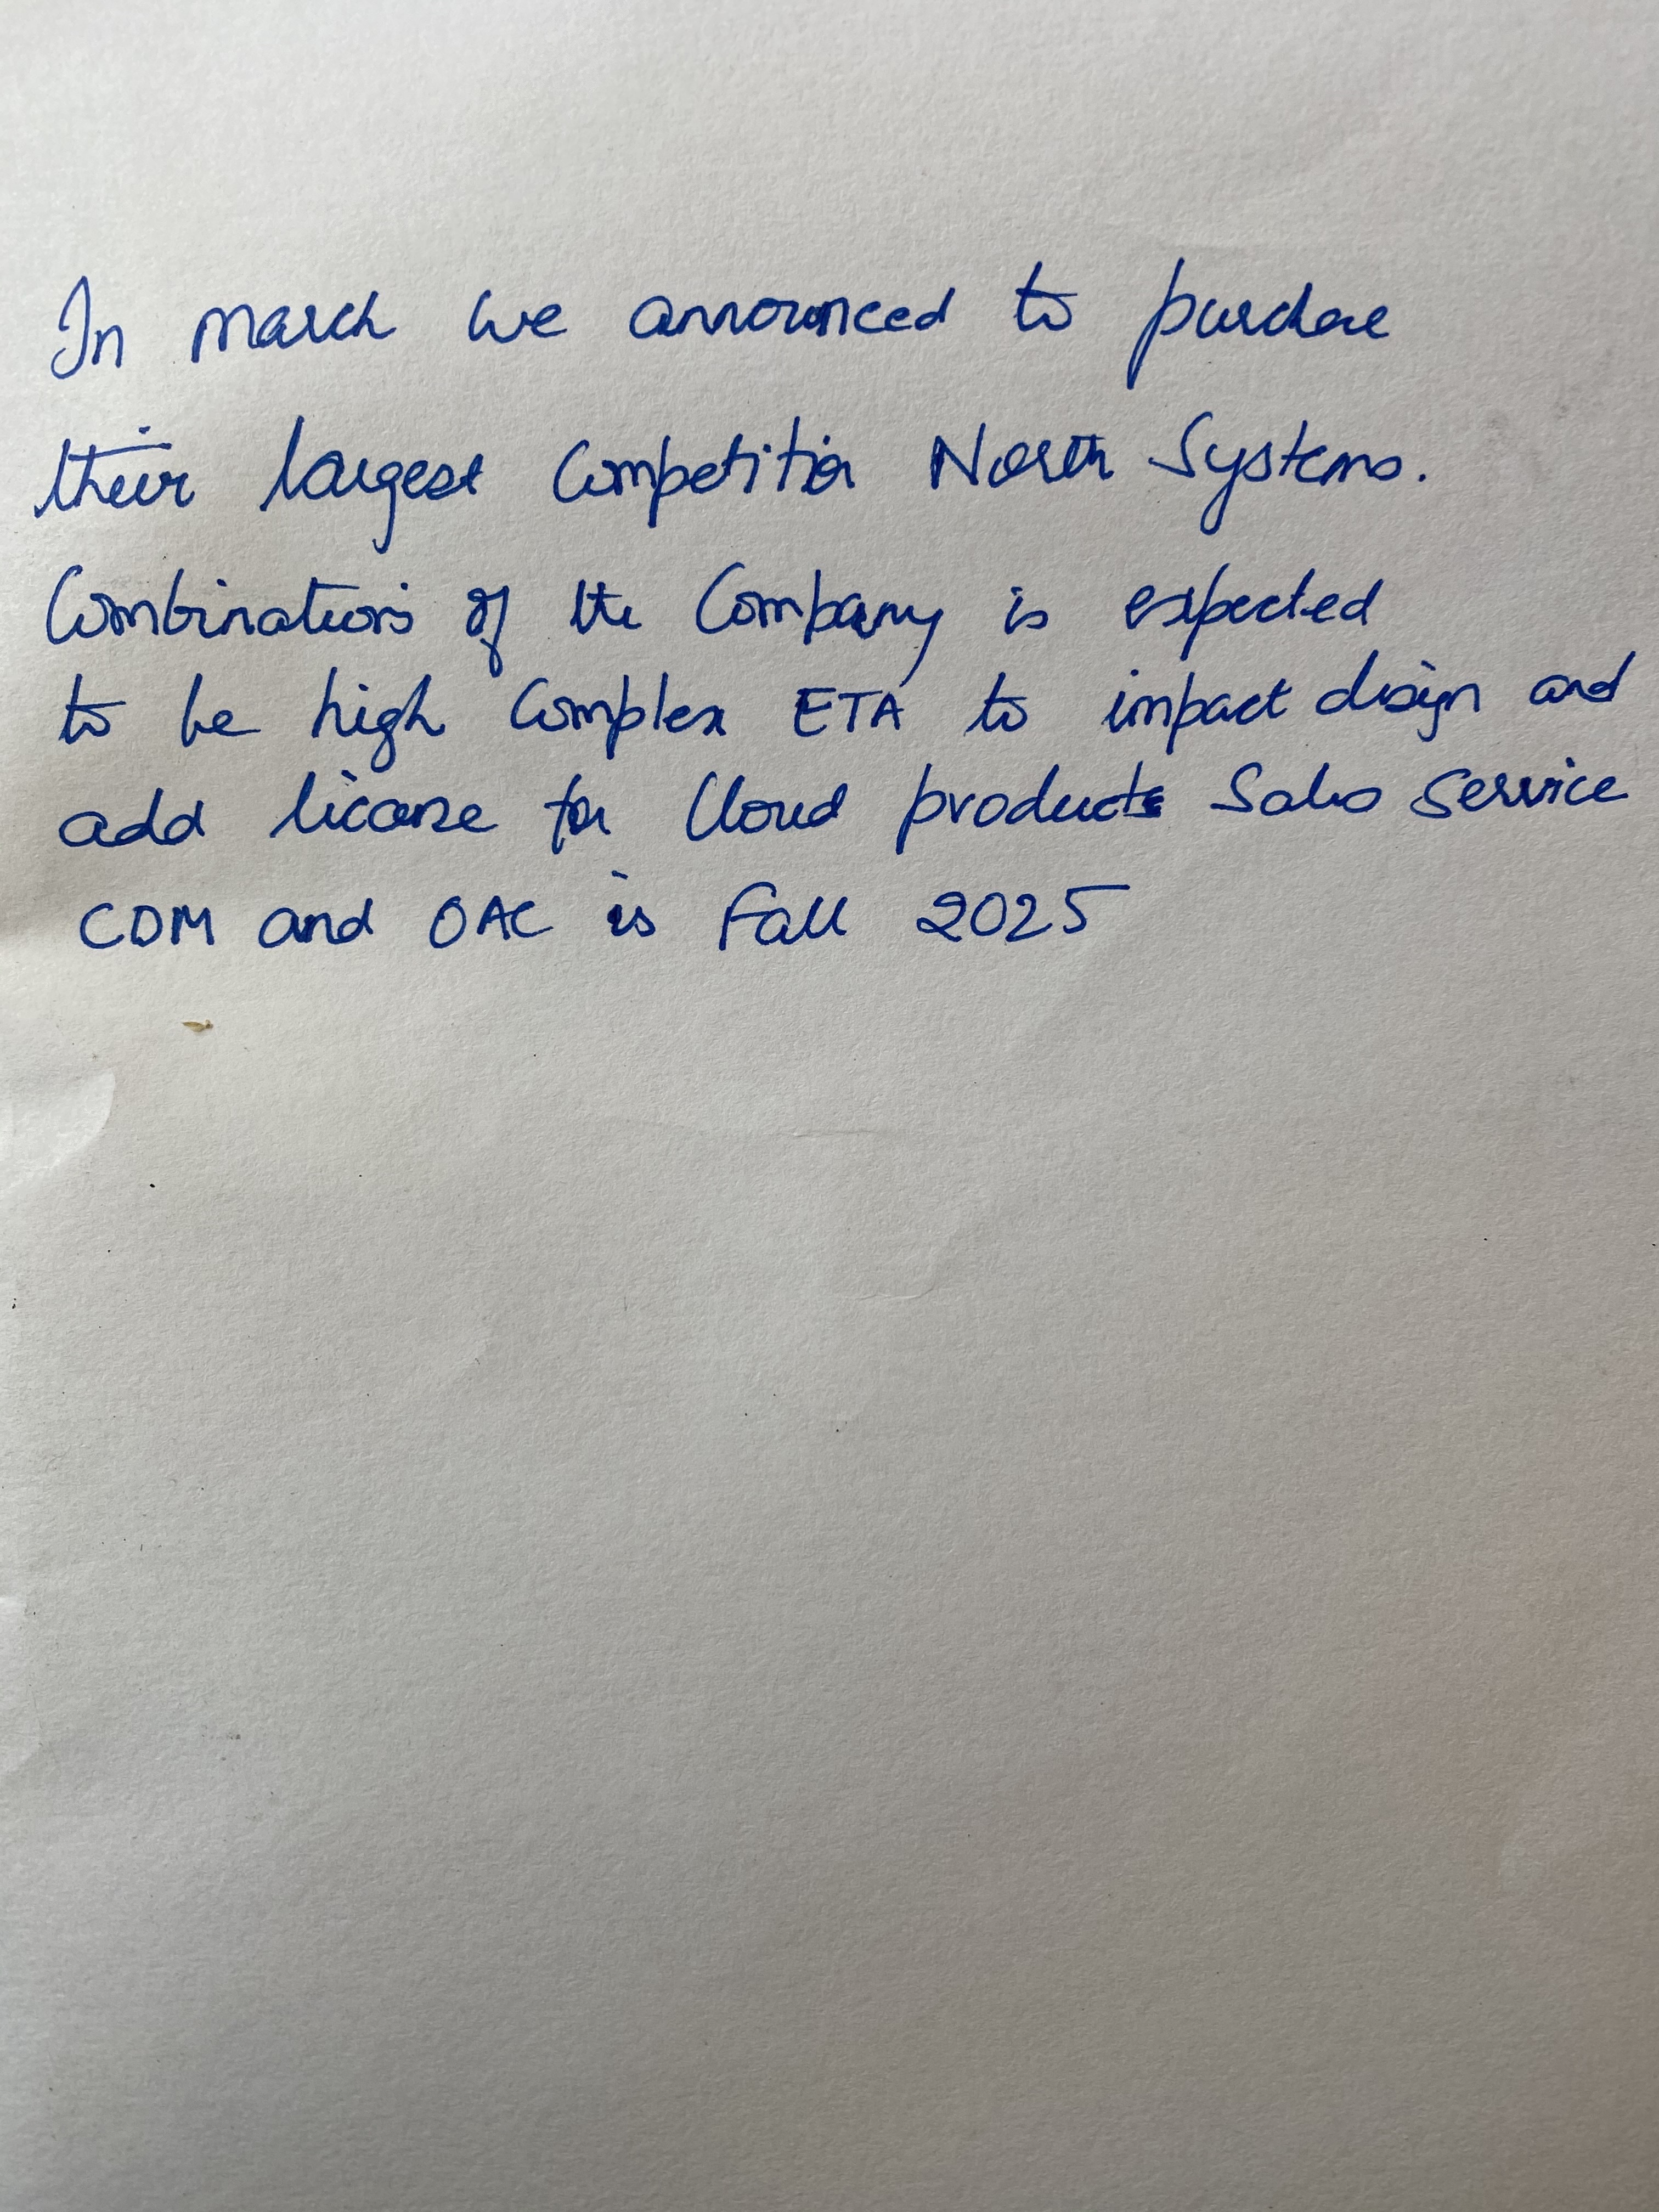 In march we announced to purchase
their largest Competitior North Systems.
Combinations of the Company is expected
to be high Complex ETA to impact design and
add license for Cloud products Sales Service
CDM and OAC is Fall 2025